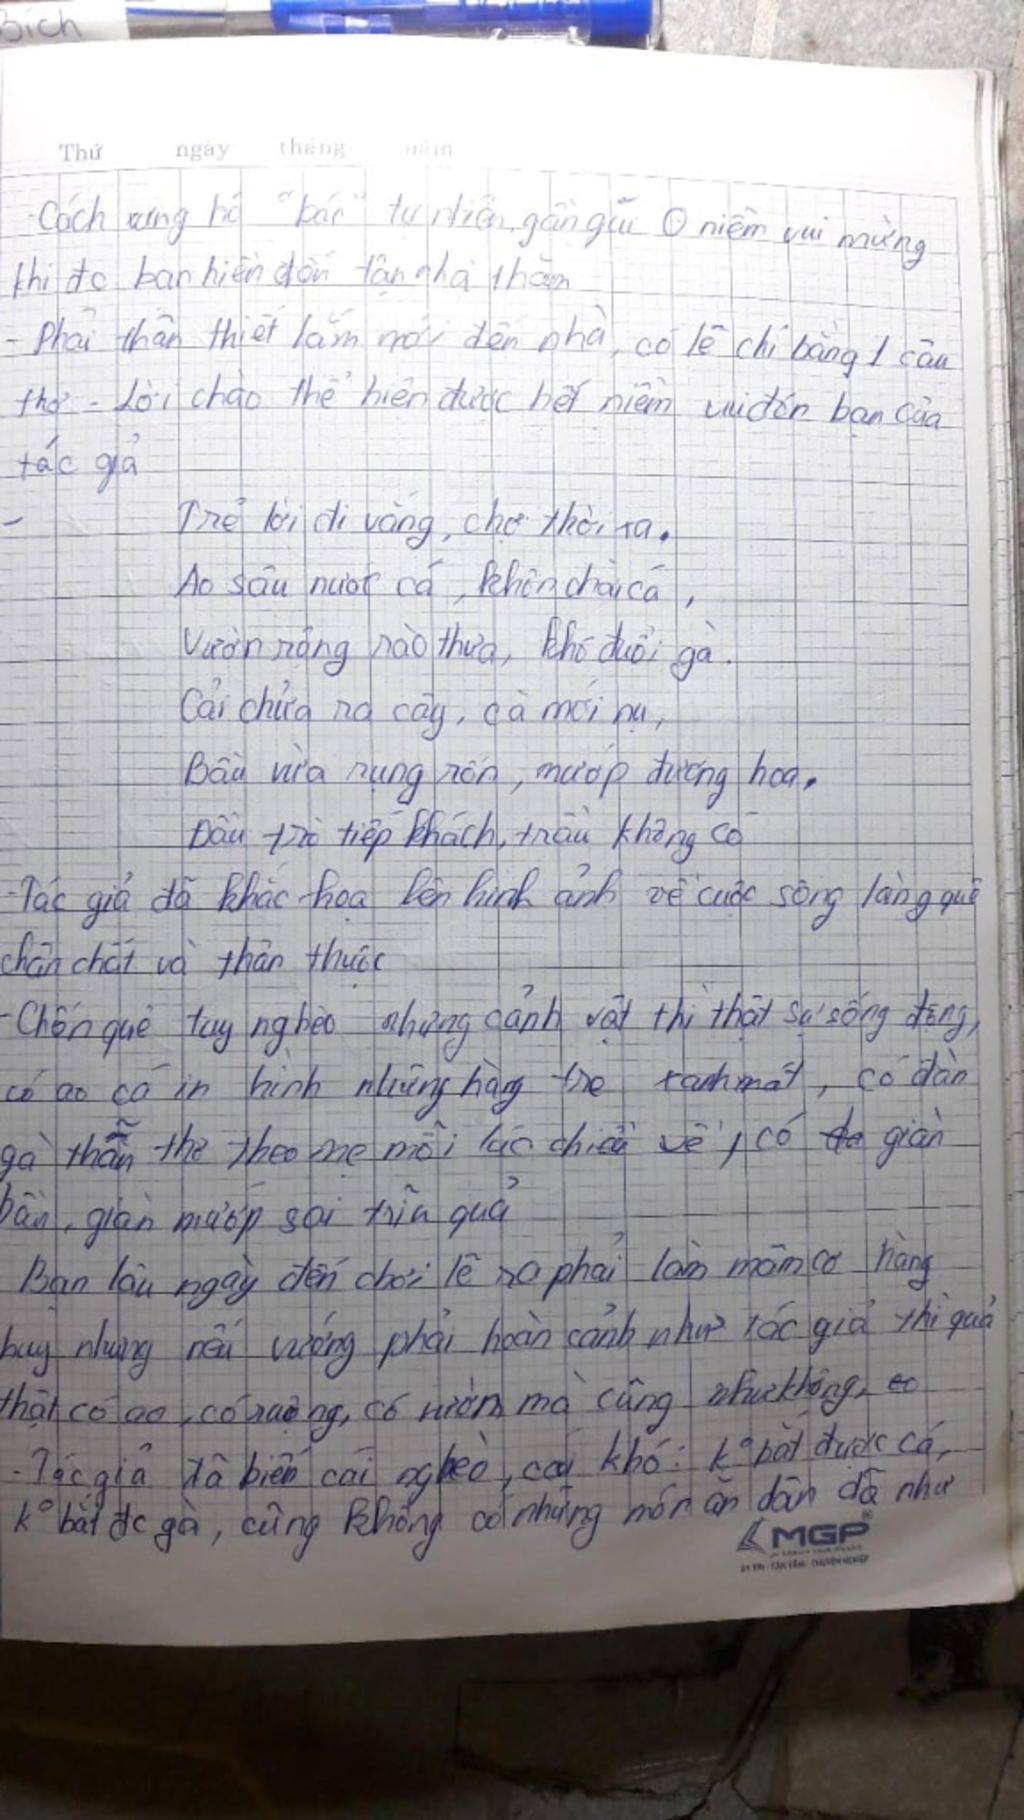 Bích
Thứ ngày tháng năm
-Cách xưng hô "bác" tự nhiên, gần gũi niềm vui mừng
khi đc bạn hiền đến tận nhà thăm
- Phải thân thiết lắm mới đến nhà, có lẽ chỉ bằng 1 câu
thơ - Lời chào thể hiện được hết niềm vui đón bạn của
tác giả
- Trẻ lời đi vắng, chợ thời xa.
Ao sâu nước cả, khôn chài cá,
Vườn rộng rào thưa, khó đuổi gà.
Cải chửa ra cây, cà mới nụ,
Bầu vừa rụng rốn, mướp đương hoa.
Đầu trò tiếp khách, trầu không có
-Tác giả đã khắc họa lên hình ảnh về cuộc sống làng quê
chân chất và thân thuộc
-Chốn quê tuy nghèo nhưng cảnh vật thì thật sự sống động,
có ao cá in hình những hàng tre xanh mát, có đàn
gà thẫn thơ theo mẹ mỗi lúc chiều về, có giàn
bầu, giàn mướp sai trĩu quả
Bạn lâu ngày đến chơi lẽ ra phải làm mâm cơ hàng
huy nhưng nếu vướng phải hoàn cảnh như tác giả thì quả
thật có ao, có ruộng, có vườn mà cũng như không,
-Tác giả đã biến cái nghèo, cái khó: k° bắt được cá,
k° bắt đc gà, cũng không có những món ăn dân dã như
MGP